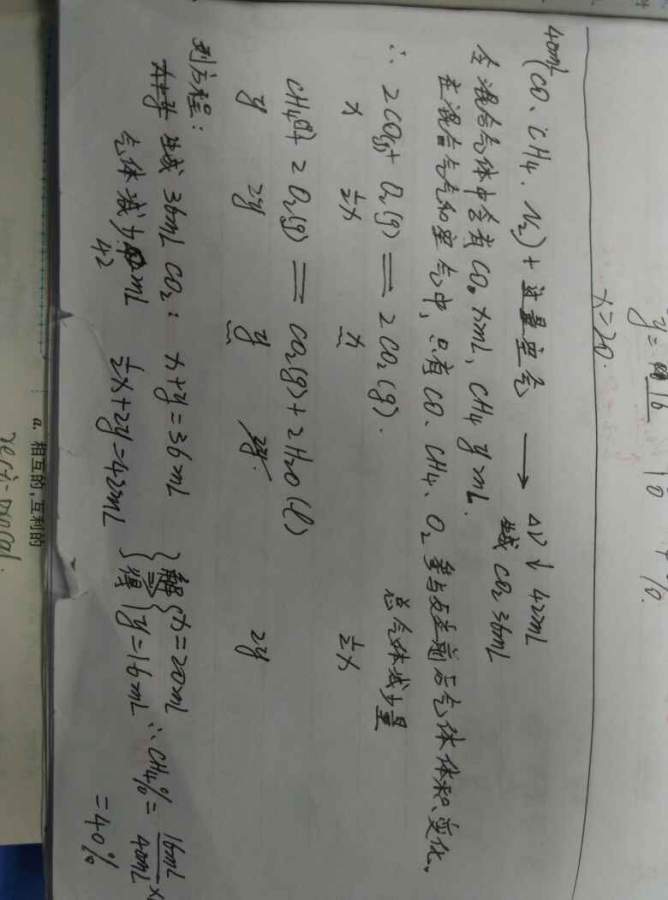 y = 16
x=20.
40ml (CO、CH4、N2) + 过量空气 → ΔV↓ 42mL
生成 CO2 36mL
令混合气体中含有 CO xmL, CH4 ymL.
在混合气气和空气中, 只有 CO、CH4、O2 参与反应前后气体体积变化。
∴ 2CO(g) + O2(g) == 2CO2(g). 总气体减少量
x ½x x ½x
CH4(g) + 2O2(g) == CO2(g) + 2H2O(l)
y 2y y 2y 2y
列方程:
生成 36mL CO2: x+y=36mL } 解 { x=20mL
气体减少 42mL ½x+2y=42mL } 得 { y=16mL ∴ CH4% = 16mL/40mL ×
=40%
a. 相互的,互利的